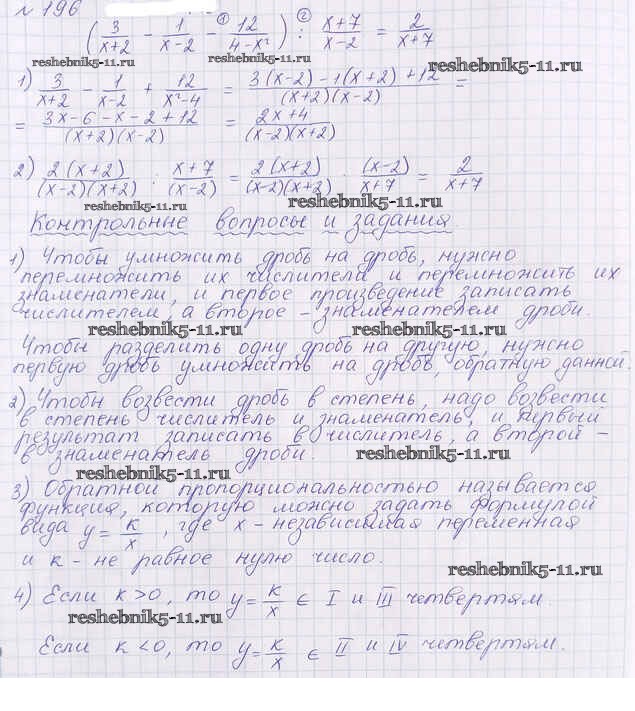 № 196
(3/(x+2) - 1/(x-2) - 12/(4-x²)) : (x+7)/(x-2) = 2/(x+7)
① ②
reshebnik5-11.ru reshebnik5-11.ru reshebnik5-11.ru
1) 3/(x+2) - 1/(x-2) + 12/(x²-4) = (3(x-2) - 1(x+2) + 12)/((x+2)(x-2)) =
= (3x-6-x-2+12)/((x+2)(x-2)) = (2x+4)/((x-2)(x+2))
2) 2(x+2)/((x-2)(x+2)) : (x+7)/(x-2) = 2(x+2)/((x-2)(x+2)) · (x-2)/(x+7) = 2/(x+7)
reshebnik5-11.ru reshebnik5-11.ru
Контрольные вопросы и задания.
1) Чтобы умножить дробь на дробь, нужно
перемножить их числители и перемножить их
знаменатели, и первое произведение записать
числителем, а второе – знаменателем дроби.
reshebnik5-11.ru reshebnik5-11.ru
Чтобы разделить одну дробь на другую, нужно
первую дробь умножить на дробь, обратную данной.
2) Чтобы возвести дробь в степень, надо возвести
в степень числитель и знаменатель, и первый
результат записать в числитель, а второй –
в знаменатель дроби.
reshebnik5-11.ru
reshebnik5-11.ru
3) Обратной пропорциональностью называется
функция, которую можно задать формулой
вида y = k/x, где x - независимая переменная
и k - не равное нулю число.
reshebnik5-11.ru
4) Если k > 0, то y = k/x ∈ I и III четвертям.
reshebnik5-11.ru
Если k < 0, то y = k/x ∈ II и IV четвертям.